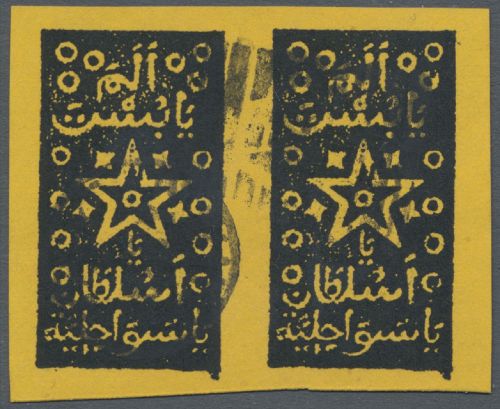 اَلَمَ
يَا بُسْت
يَا
اَسُلْطَان
يَاسَوَاحِلِيَّة
اَلَمَ
يَا بُسْت
يَا
اَسُلْطَان
يَاسَوَاحِلِيَّة